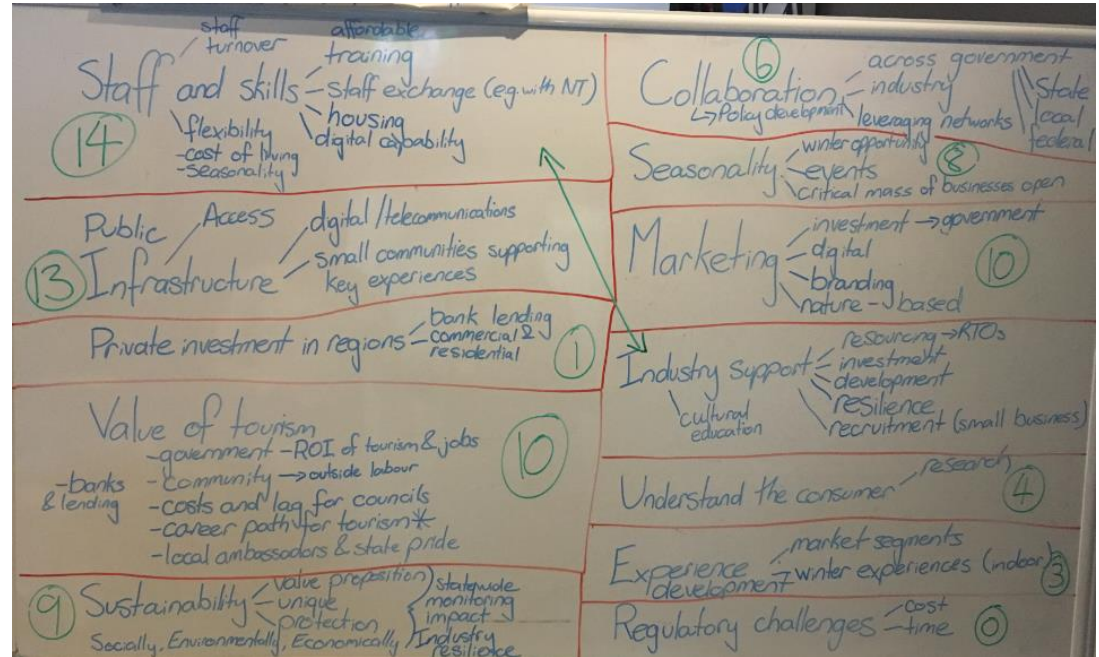 staff
turnover
affordable
training
Staff and skills
staff exchange (eg. with NT)
housing
digital capability
flexibility
-cost of living
-seasonality
14
Public
Infrastructure
Access
digital/telecommunications
small communities supporting
key experiences
13
Private investment in regions
bank lending
commercial &
residential
1
Value of tourism
-government -ROI of tourism & jobs
-banks
& lending
-community → outside labour
-costs and lag for councils
-career path for tourism*
-local ambassadors & state pride
10
9
Sustainability
value proposition
unique
protection
Socially, Environmentally, Economically
statewide
monitoring
impact
Industry
resilience
6
Collaboration
across government
industry
↳Policy development
leveraging networks
State
local
federal
Seasonality
winter opportunity
events
critical mass of businesses open
8
Marketing
investment → government
digital
branding
nature-based
10
Industry support
resourcing → RTOs
investment
development
resilience
recruitment (small business)
cultural
education
Understand the consumer
research
4
Experience
development
market segments
winter experiences (indoor)
3
Regulatory challenges
cost
time
0